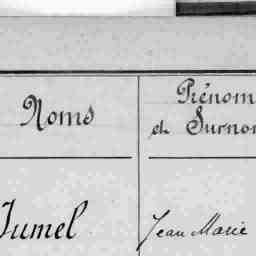 Noms
Prénom
et Surnom
Jumel
Jean Marie